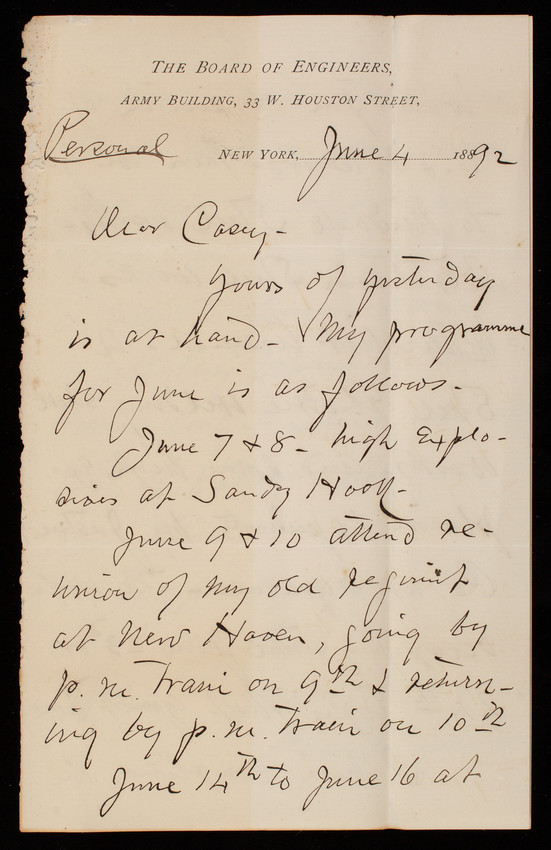 THE BOARD OF ENGINEERS,
ARMY BUILDING, 33 W. HOUSTON STREET,
Personal
NEW YORK, June 4 1892
Dear Casey -
Yours of yesterday
is at hand - My programme
for June is as follows -
June 7 & 8 - high explo-
sives at Sandy Hook -
June 9 & 10 attend re-
union of my old regiment
at New Haven, going by
p. m. train on 9th & return-
ing by p. m. train on 10th
June 14th to June 16 at